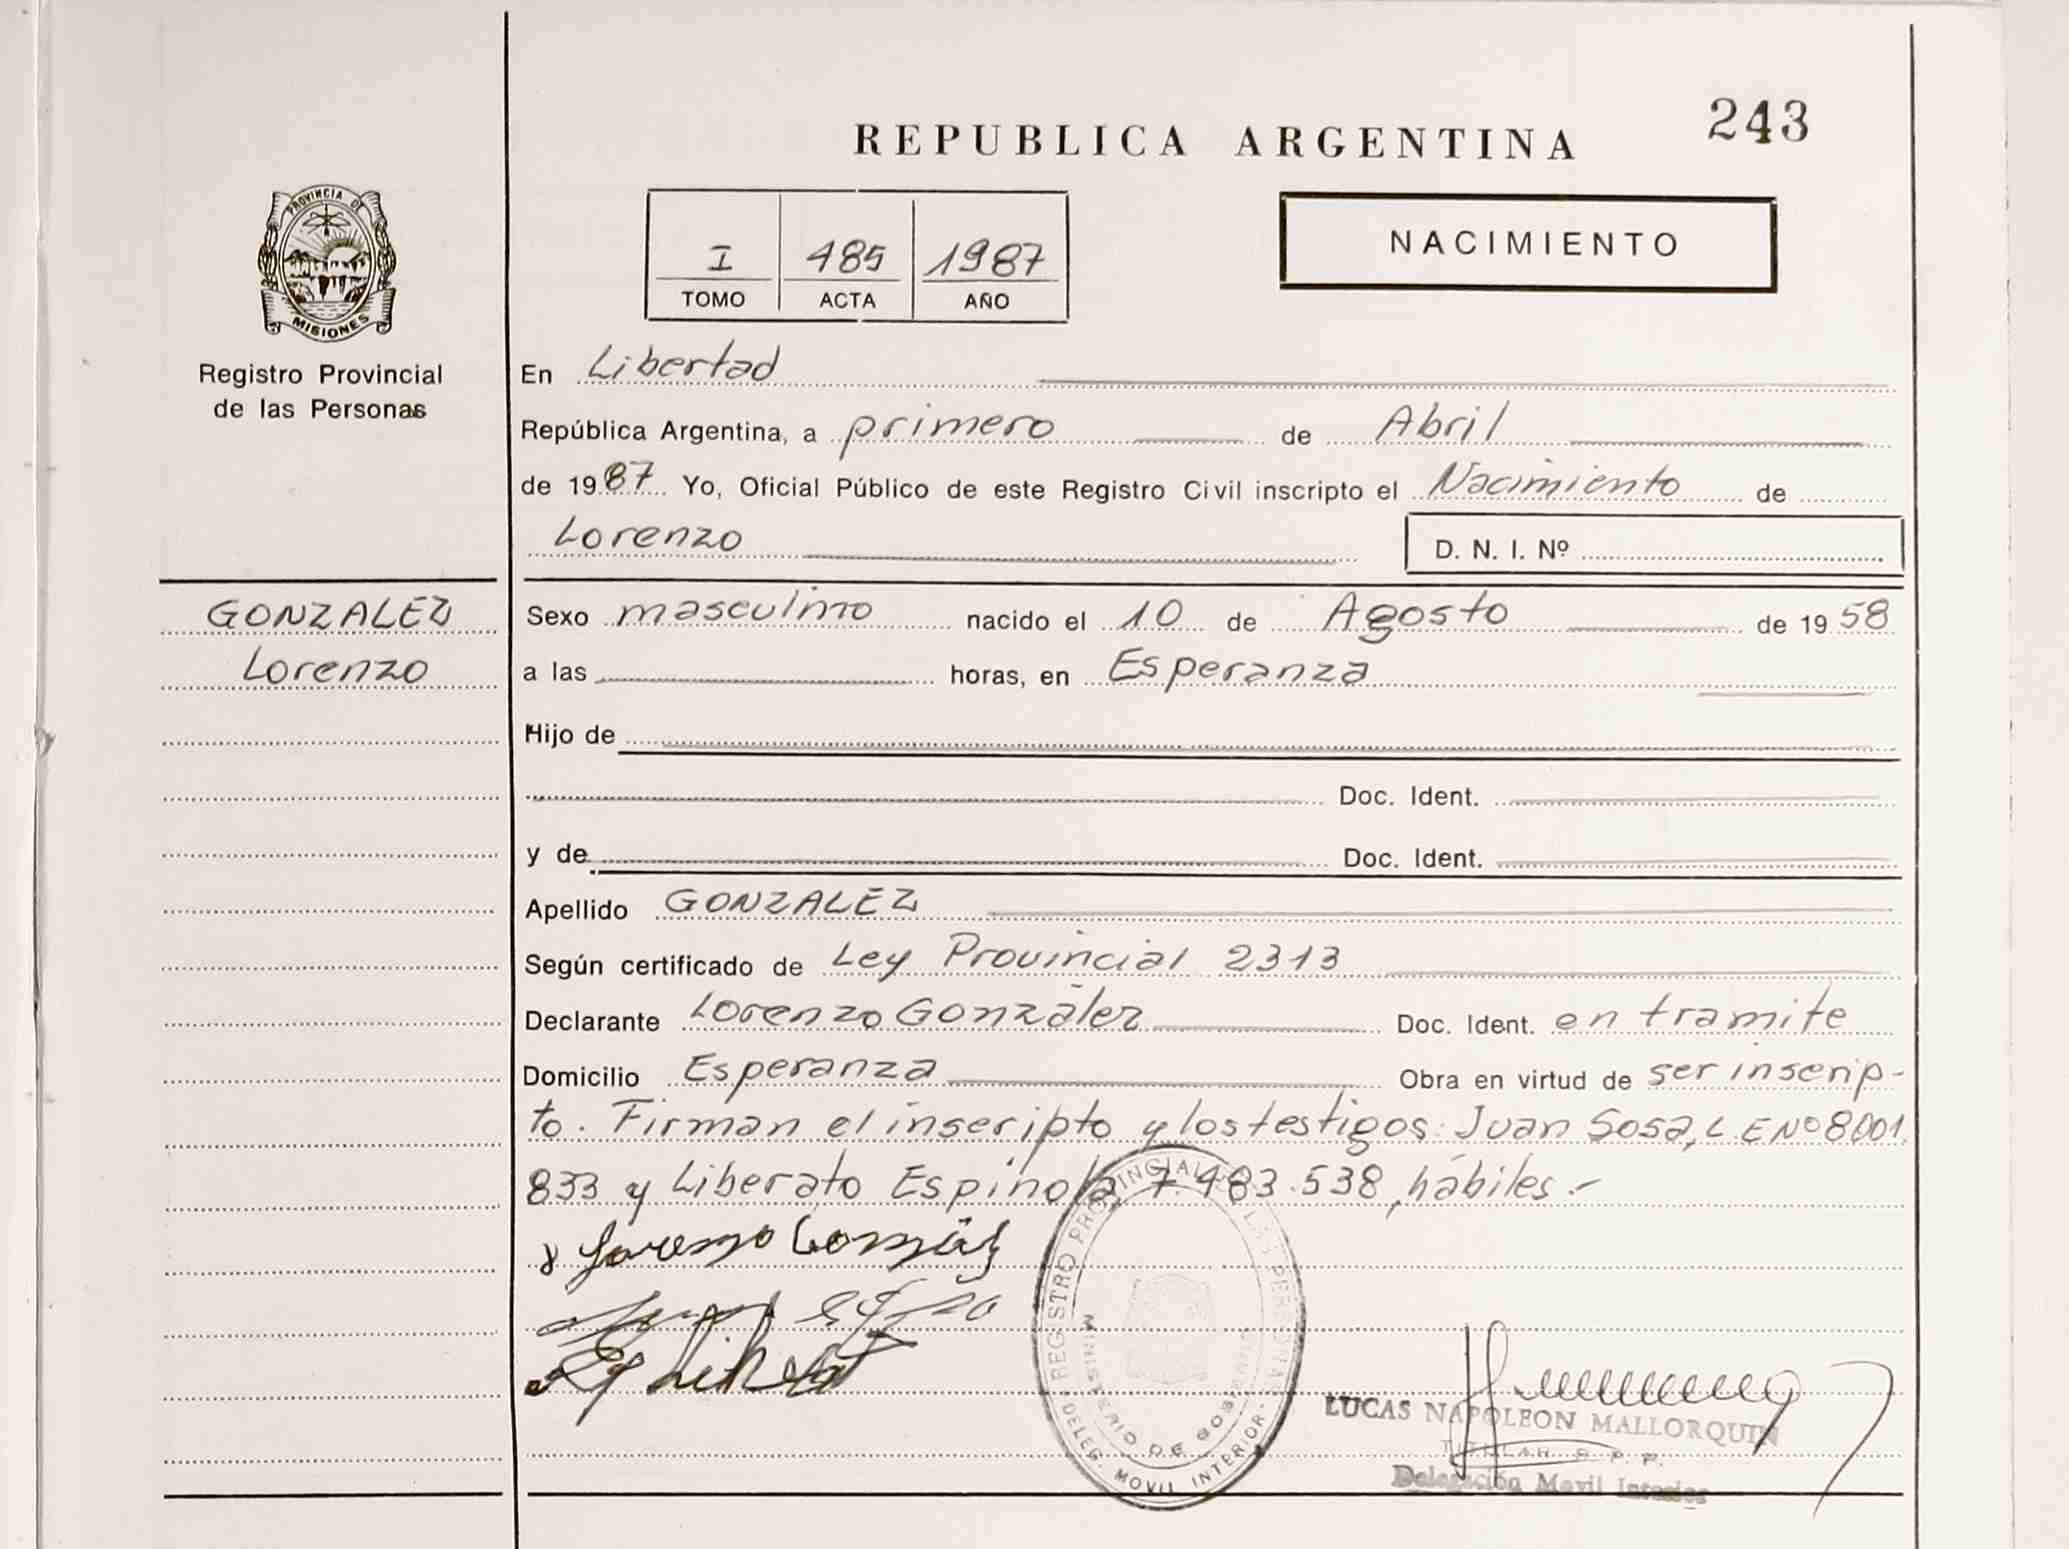 243
REPUBLICA ARGENTINA
NACIMIENTO
I 485 1987
TOMO ACTA AÑO
PROVINCIA DE
MISIONES
Registro Provincial
de las Personas
En Libertad
República Argentina, a primero de Abril
de 1987 Yo, Oficial Público de este Registro Civil inscripto el Nacimiento de
Lorenzo D. N. I. Nº
GONZALEZ
Lorenzo
Sexo masculino nacido el 10 de Agosto de 1958
a las horas, en Esperanza
Hijo de
Doc. Ident.
y de Doc. Ident.
Apellido GONZALEZ
Según certificado de Ley Provincial 2313
Declarante Lorenzo González Doc. Ident. en tramite
Domicilio Esperanza Obra en virtud de ser inscrip-
to. Firman el inscripto y los testigos: Juan Sosa, L E Nº 8001.
833 y Liberato Espinola 7.483.538, hábiles.-
Lorenzo González
REGISTRO PROVINCIAL DE LAS PERSONAS
MINISTERIO DE GOBIERNO
DELEG. MOVIL INTERIOR
LUCAS NAPOLEON MALLORQUIN
TITULAR R. P. P.
Delegación Movil Interior